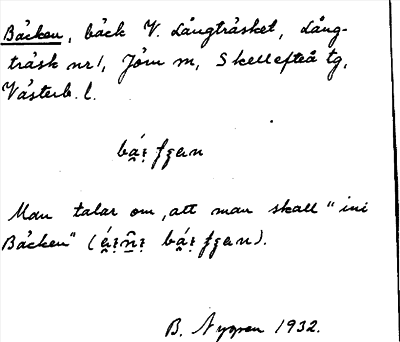 Bäcken, bäck V. Långträsket, Lång-
träsk nr 1, Jörn sn, Skellefteå tg,
Västerb. l.
Man talar om, att man skall "ini
Bäcken" ( ).
B. Nygren 1932.